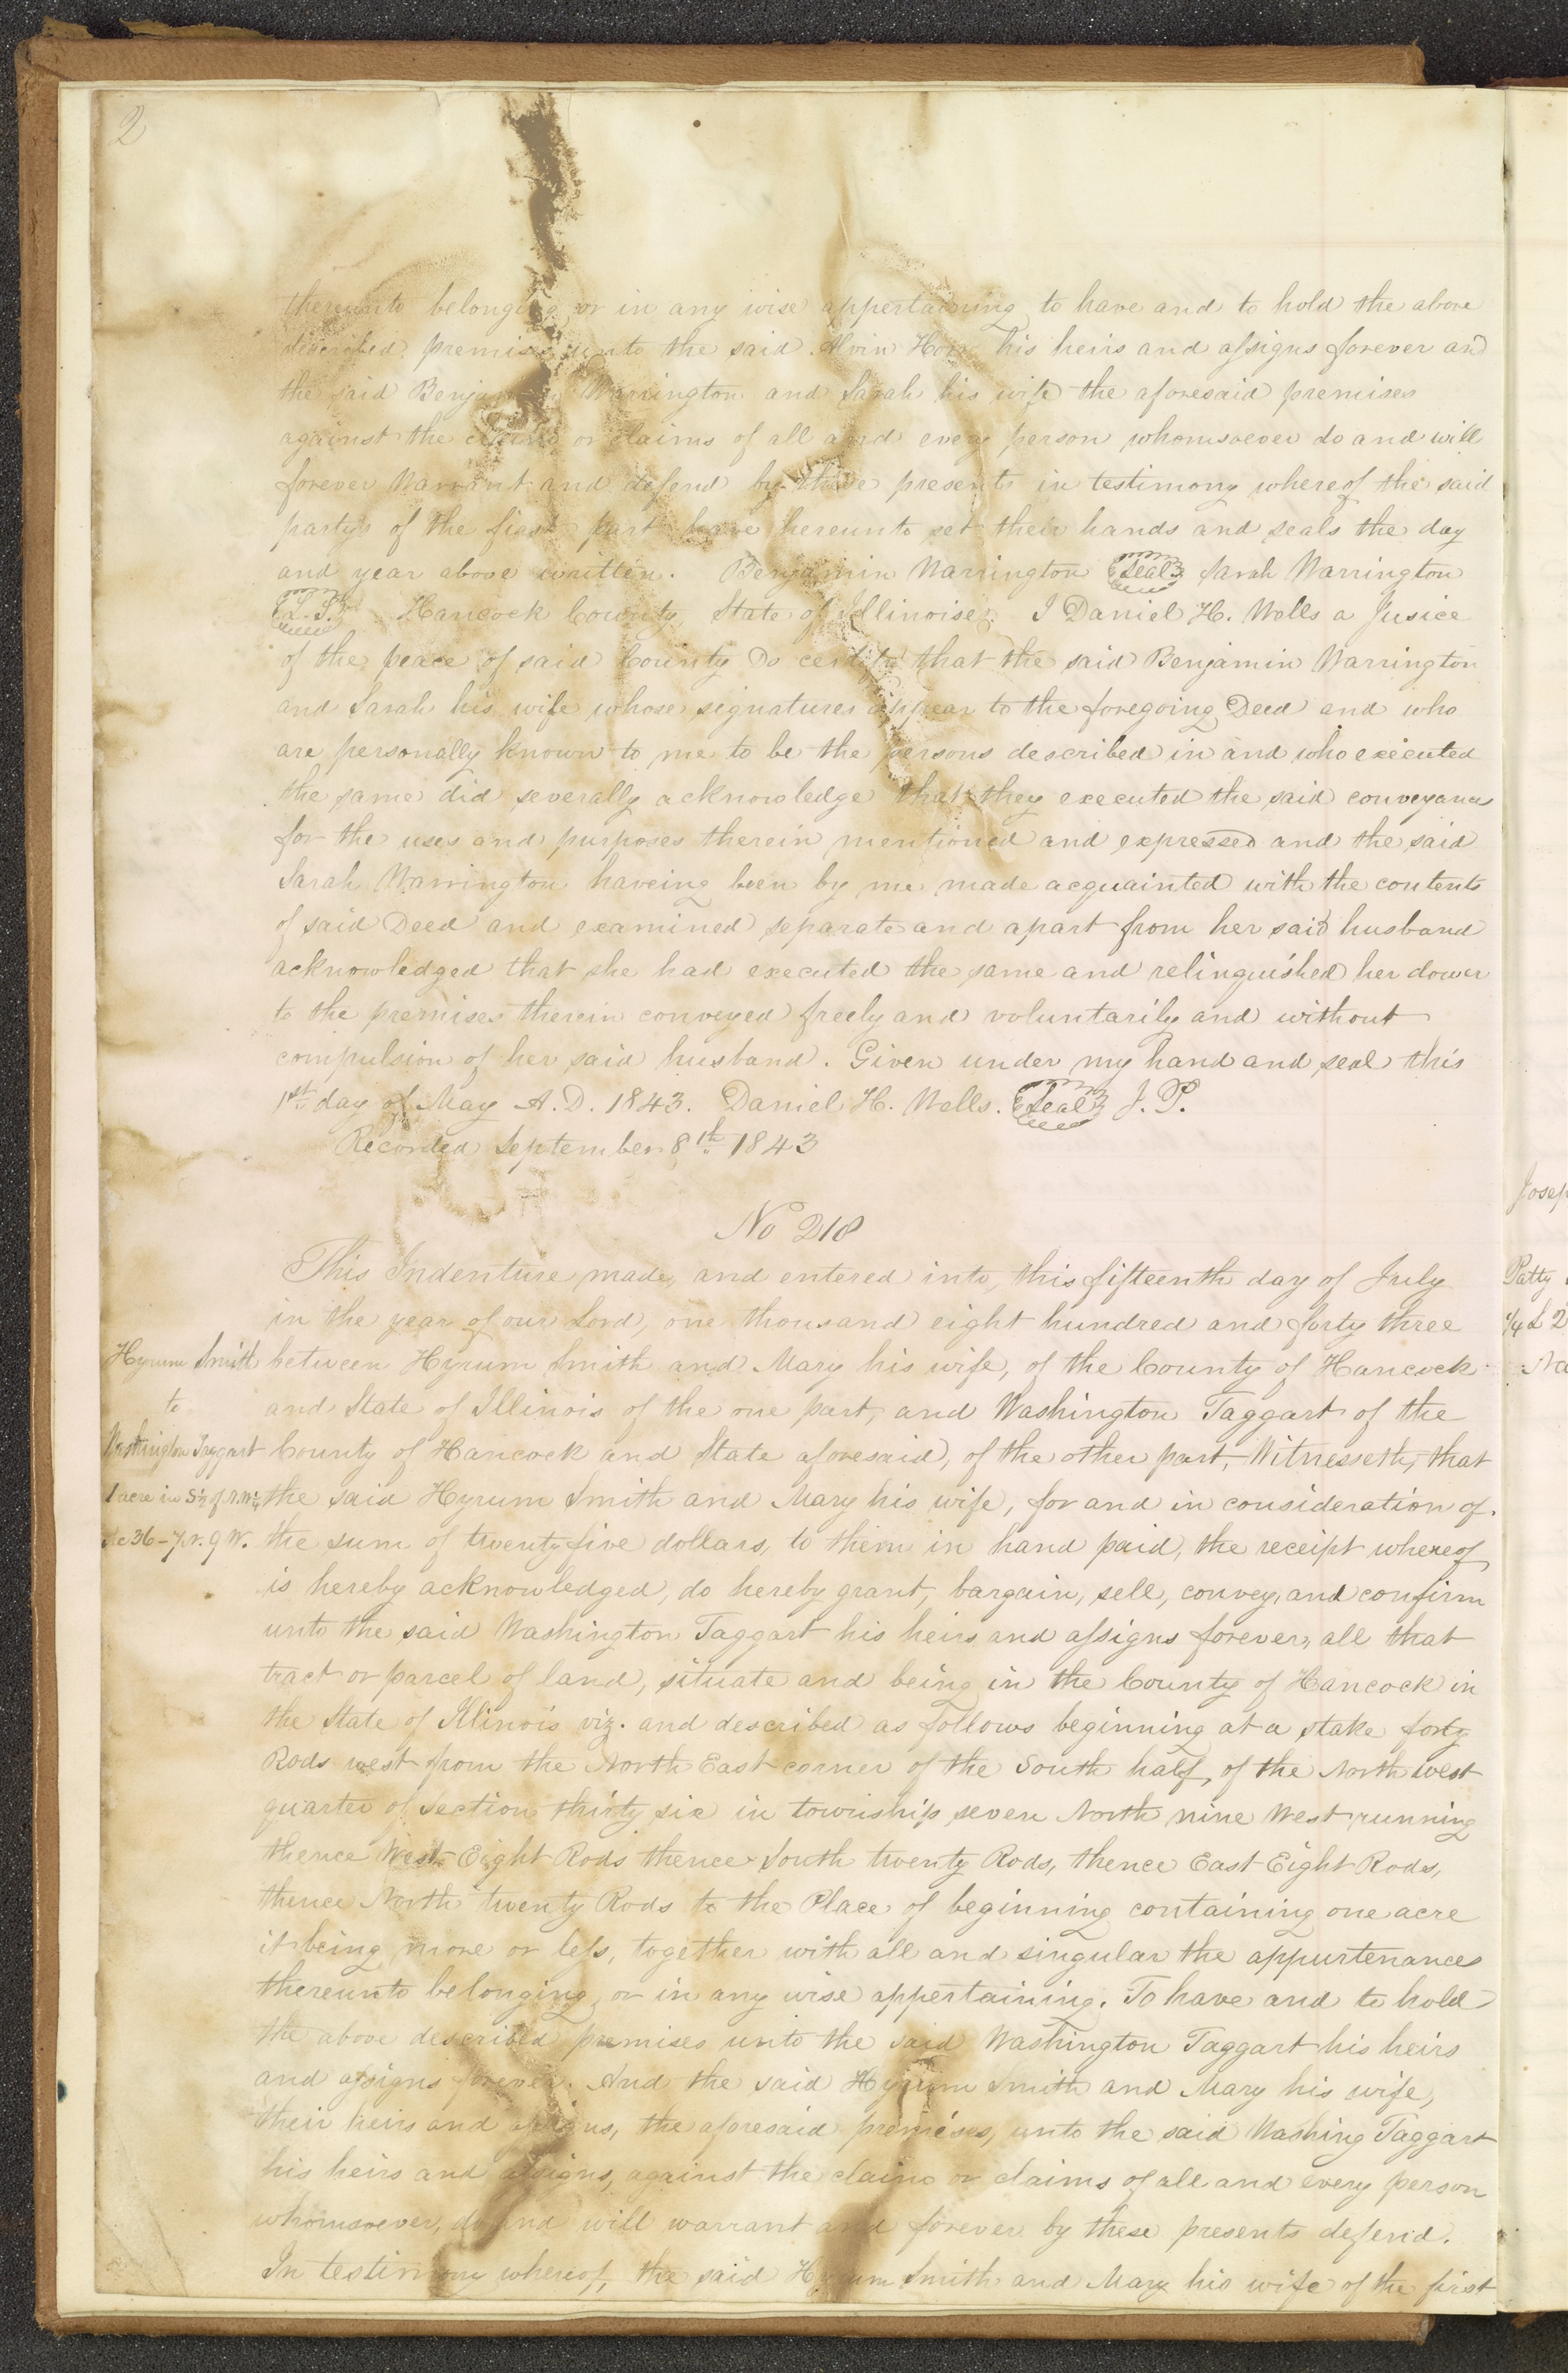 2
thereunto belonging or in any wise appertaining to have and to hold the above
described premises unto the said Alvin Horr his heirs and assigns forever and
the said Benjamin Warrington and Sarah his wife the aforesaid premises
against the claims or claims of all and every person whomsoever do and will
forever Warrant and defend by these presents in testimony whereof the said
partys of the first part have hereunto set their hands and seals the day
and year above written. Benjamin Warrington Seal Sarah Warrington
L.S. Hancock County, State of Illinoise. I Daniel H. Wells a Jusice
of the peace of said County Do certify that the said Benjamin Warrington
and Sarah his wife whose signatures appear to the foregoing Deed and who
are personally known to me to be the persons described in and who executed
the same did severally acknowledge that they executed the said conveyances
for the uses and purposes therein mentioned and expressed and the said
Sarah Warrington haveing been by me made acquainted with the contents
of said Deed and examined separate and apart from her said husband
acknowledged that she had executed the same and relinquished her dower
to the premises therein conveyed freely and voluntarily and without
compulsion of her said husband. Given under my hand and seal this
1st day of May A.D. 1843. Daniel H. Wells. Seal J. P.
Recorded September 8th 1843
No 218
This Indenture made, and entered into, this fifteenth day of July
in the year of our Lord, one thousand eight hundred and forty three
Hyrum Smith
to
Washington Taggart
1 acre in S½ of N.W¼
Se 36-7N. 9W.
between Hyrum Smith and Mary his wife, of the County of Hancock
and State of Illinois of the one part, and Washington Taggart of the
County of Hancock and State aforesaid, of the other part, Witnesseth, that
the said Hyrum Smith and Mary his wife, for and in consideration of
the sum of twenty five dollars, to them in hand paid, the receipt whereof
is hereby acknowledged, do hereby grant, bargain, sell, convey, and confirm
unto the said Washington Taggart his heirs and assigns forever, all that
tract or parcel of land, situate and being in the County of Hancock in
the State of Illinois viz. and described as follows beginning at a stake forty
Rods west from the North East corner of the South half, of the North West
quarter of Section thirty six in township seven North nine West running
thence West Eight Rods thence South twenty Rods, thence East Eight Rods,
thence North twenty Rods to the Place of beginning containing one acre
it being more or less, together with all and singular the appurtenances
thereunto belonging, or in any wise appertaining. To have and to hold
the above described premises unto the said Washington Taggart his heirs
and assigns forever. And the said Hyrum Smith and Mary his wife,
their heirs and assigns, the aforesaid premises, unto the said Washing Taggart
his heirs and assigns, against the claim or claims of all and every person
whomsoever, do and will warrant and forever by these presents defend.
In testimony whereof, the said Hyrum Smith and Mary his wife of the first
Josep
Patty
¼ L 2